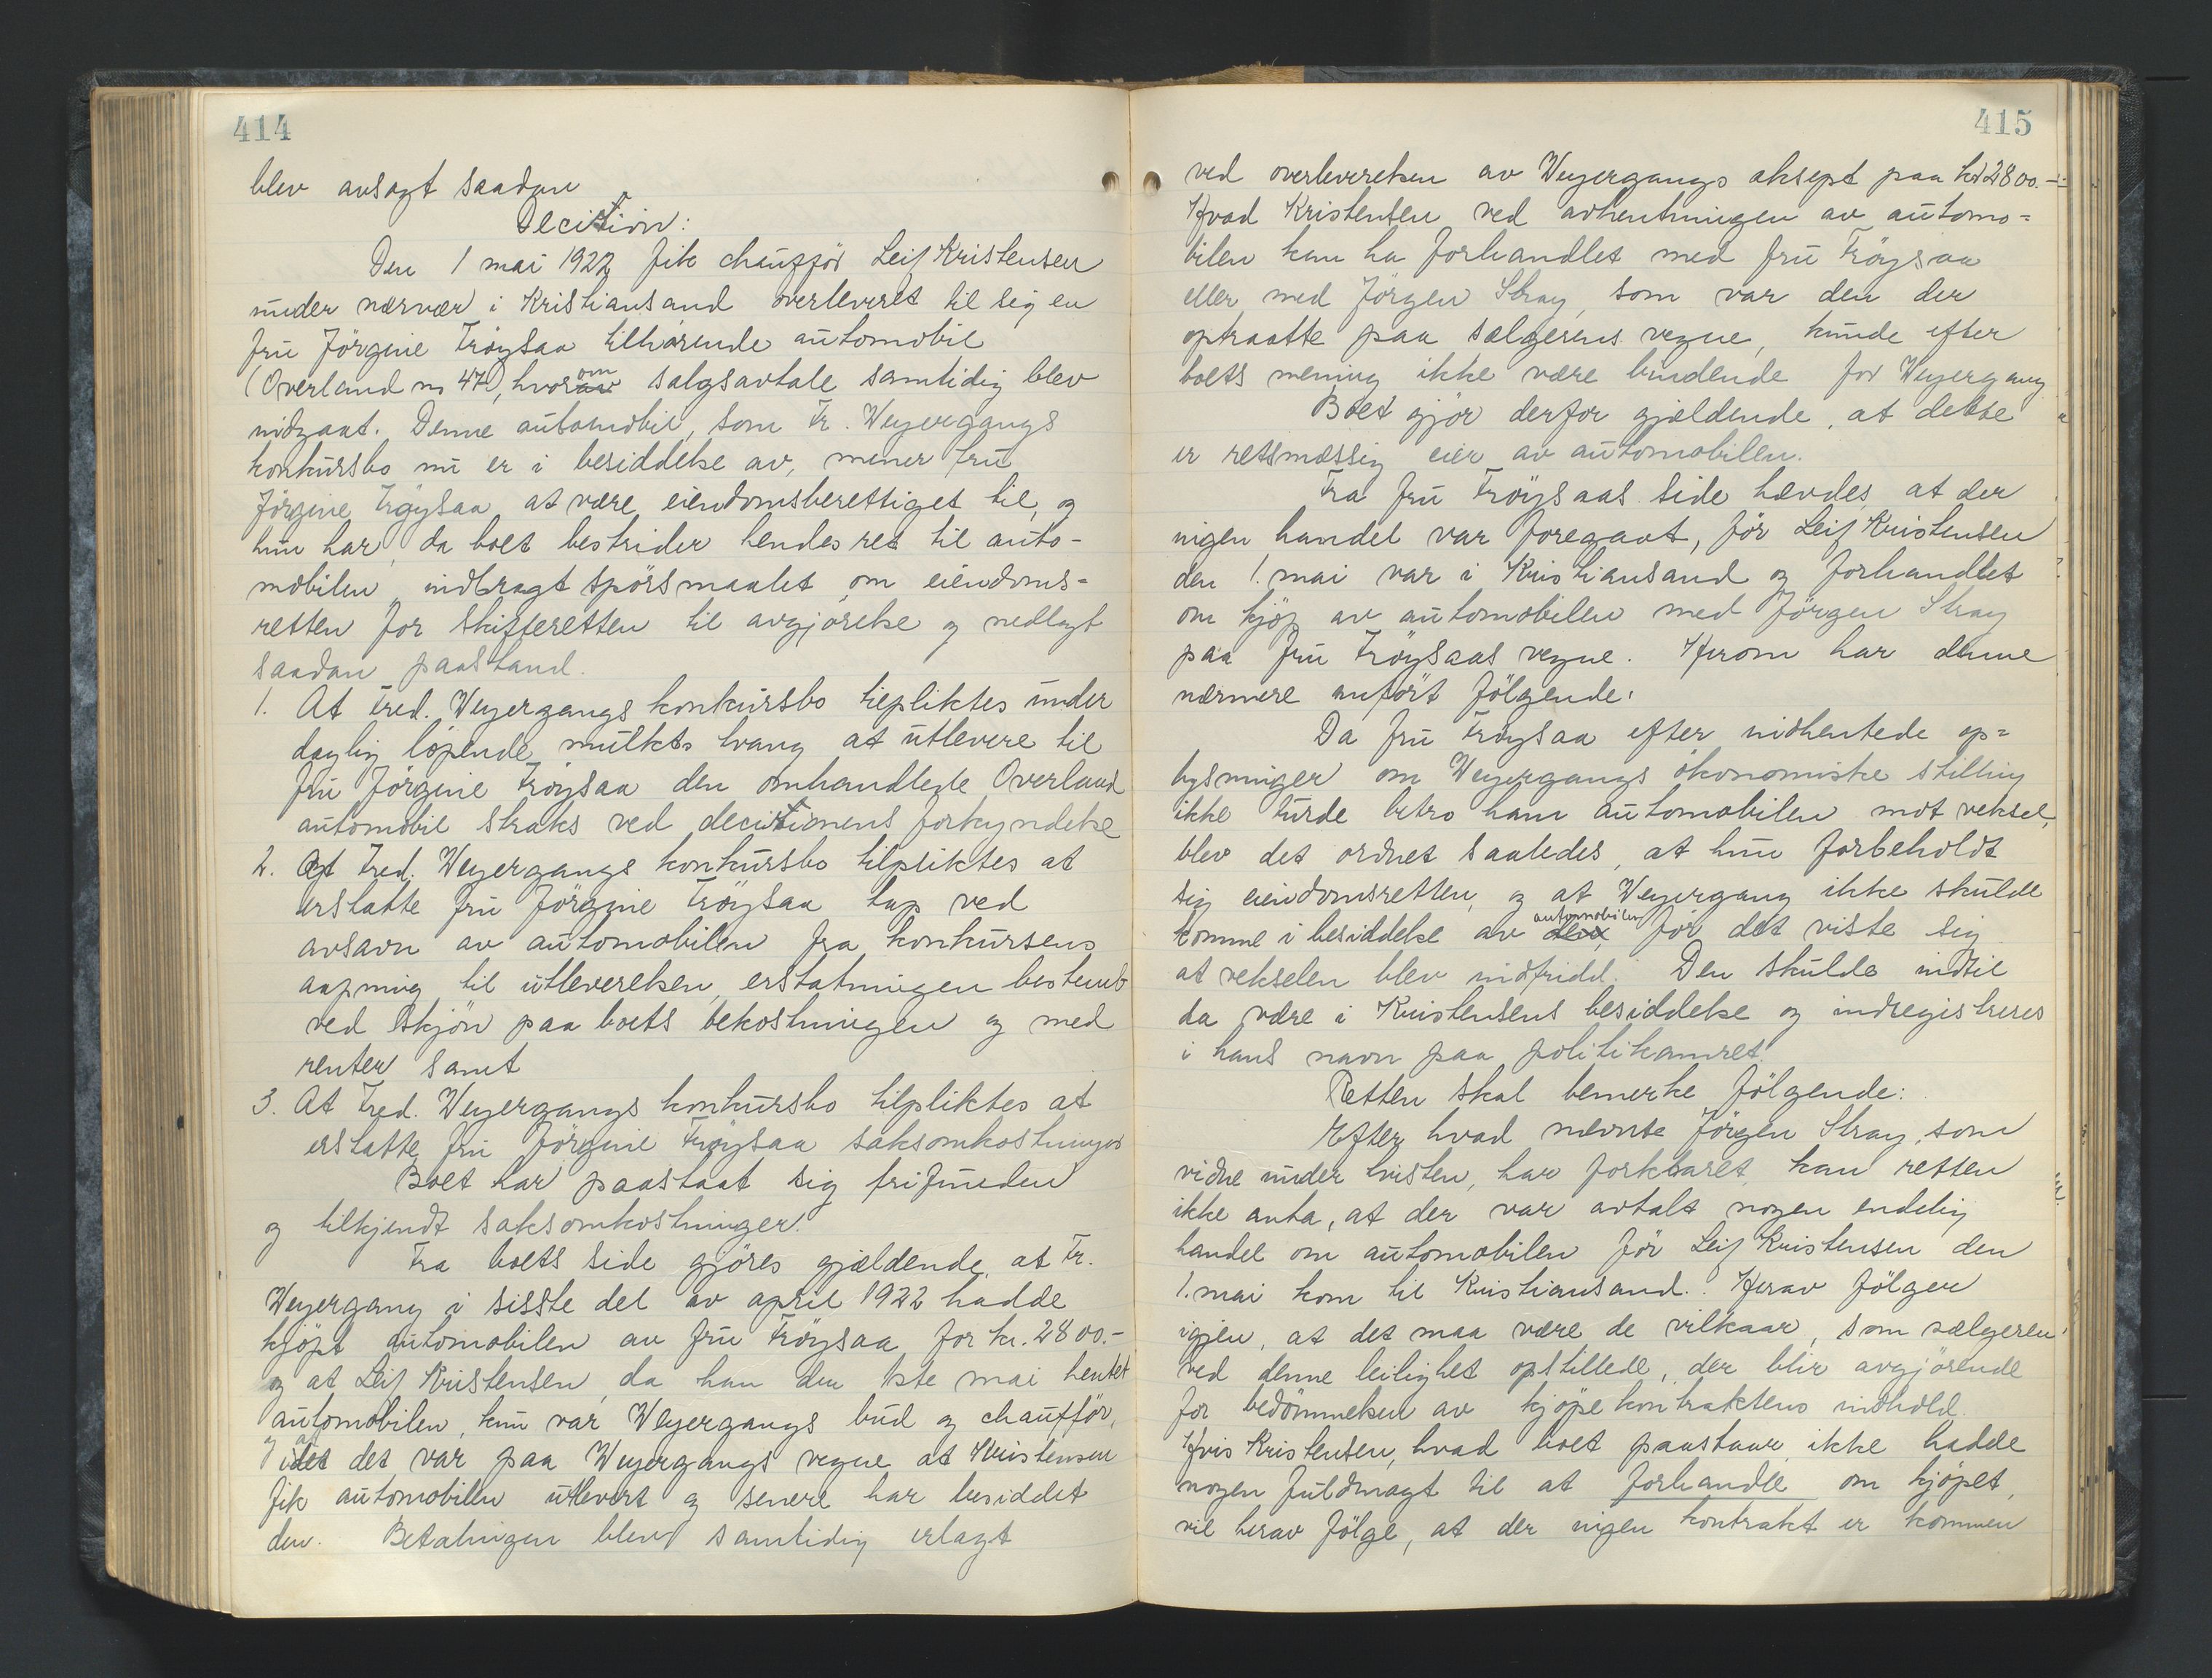 414
blev avsagt saadan
Decision:
Den 1 mai 1922 fik chauffør Leif Kristensen
under nærvær i Kristiansand overleveret til sig en
fru Jörgine Tröysaa tilhörende automobil
(Overland no 47), hvorom salgsavtale samtidig blev
indgaat. Denne automobil, som Fr. Weyergangs
konkursbo nu er i besiddelse av, mener fru
Jörgine Tröysaa at være eiendomsberettiget til, og
hun har, da boet bestrider hendes ret til auto-
mobilen, indbragt spörsmaalet om eiendoms=
retten for skifteretten til avgjörelse og nedlagt
saadan paastand.
1. At Fred. Weyergangs konkursbo tilpliktes under
daglig löpende mulkts tvang at utlevere til
fru Jörgine Tröysaa den omhandlede Overland
automobil straks ved decisionens forkyndelse
2. At Fred. Weyergangs konkursbo tilpliktes at
erstatte fru Jörgine Tröysaa tap ved
avsavn av automobilen fra konkursens
aapning til utleverelsen, erstatningen bestemt
ved skjön paa boets bekostningen og med
renter samt
3. At Fred. Weyergangs konkursbo tilpliktes at
erstatte fru Jörgine Tröysaa saksomkostninger
Boet har paastaat sig frifunden
og tilkjendt saksomkostninger.
Fra boets side gjöres gjældende, at Fr.
Weyergang i sisste del av april 1922 hadde
kjöpt automobilen av fru Tröysaa for kr. 2800.-
og at Leif Kristensen, da han den 1ste mai hentet
automobilen, kun var Weyergangs bud og chaufför,
og at det var paa Weyergangs vegne at Kristensen
fik automobilen utlevert og senere har besiddet
den. Betalingen blev samtidig erlagt
415
ved overleverelsen av Weyergangs aksept paa kr 2800.-
Hvad Kristensen ved avhentningen av automo=
bilen kan ha forhandlet med fru Tröysaa
eller med Jörgen Stray, som var den der
optraatte paa sælgerens vegne, kunde efter
boets mening ikke være bindende for Weyergang
Boet gjör derfor gjældende, at dette
er retsmæssig eier av automobilen.
Fra fru Tröysaas side hævdes, at der
ingen handel var foregaat, för Leif Kristensen
den 1. mai var i Kristiansand og forhandlet
om kjöp av automobilen med Jörgen Stray
paa fru Tröysaas vegne. Herom har denne
nærmere anfört fölgende:
Da fru Tröysaa efter indhentede op=
lysninger om Weyergangs ökonomiske stilling
ikke turde betro ham automobilen mot veksel,
blev det ordnet saaledes, at hun forbeholdt
sig eiendomsretten, og at Weyergang ikke skulde
komme i besiddelse av automobilen för det viste sig
at vekselen blev indfridd. Den skulde indtil
da være i Kristensens besiddelse og indregistreres
i hans navn paa politikamret.
Retten skal bemerke fölgende:
Efter hvad nævnte Jörgen Stray, som
vidne under tvisten, har forklaret, kan retten
ikke anta, at der var avtalt nogen endelig
handel om automobilen för Leif Kristensen den
1. mai kom til Kristiansand. Herav fölger
igjen, at det maa være de vilkaar, som sælgeren
ved denne leilighet opstillede, der blir avgjörende
for bedömmelsen av kjöpekontraktens indhold.
Hvis Kristensen, hvad boet paastaar, ikke hadde
nogen fuldmagt til at forhandle om kjöpet,
vil herav fölge, at der ingen kontrakt er kommen